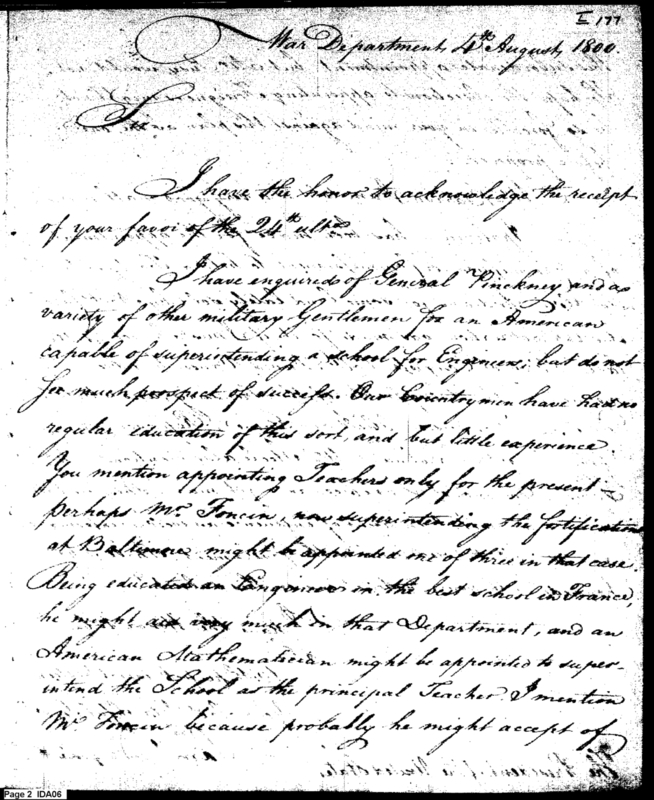 I 177
War Department 4th August 1800.
S
I have the honor to acknowledge the receipt
of your favor of the 24th ulto
I have enquired of General Pinckney and a
variety of other military Gentlemen for an American
capable of superintending a school for Engineers, but do not
see much prospect of success. Our Countrymen have had no
regular education of this sort, and but little experience.
You mention appointing Teachers only for the present –
perhaps Mr Foncin, now superintending the fortifications
at Baltimore might be appointed one of three in that case.
Being educated an Engineer in the best school in France,
he might aid very much in that Department, and an
American Mathematician might be appointed to super-
intend the School as the principal Teacher. I mention
Mr Foncin because probably he might accept of
The President of the United States
Page 2 IDA06